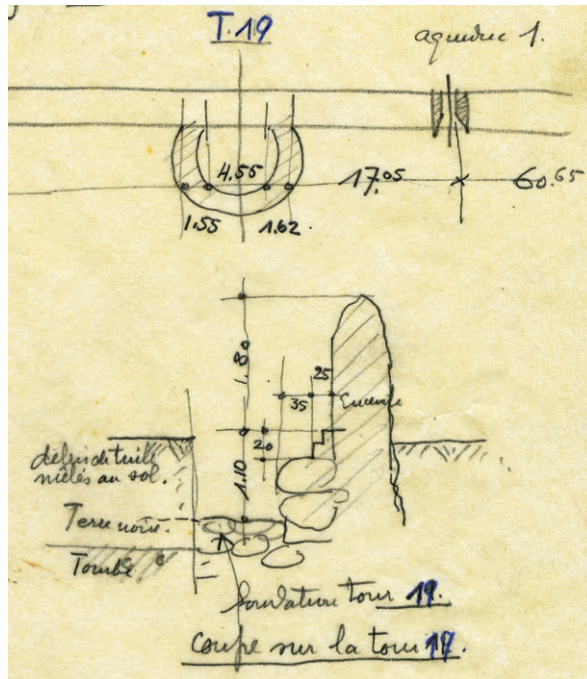 T.19
aqueduc 1.
4.55
17.05
60.65
1.55
1.62
1.80
25
35
Enceinte
20
1.10
débris de tuile
mêlés au sol.
Terre noire.
Tombe
fondature tour 19.
coupe sur la tour 19.